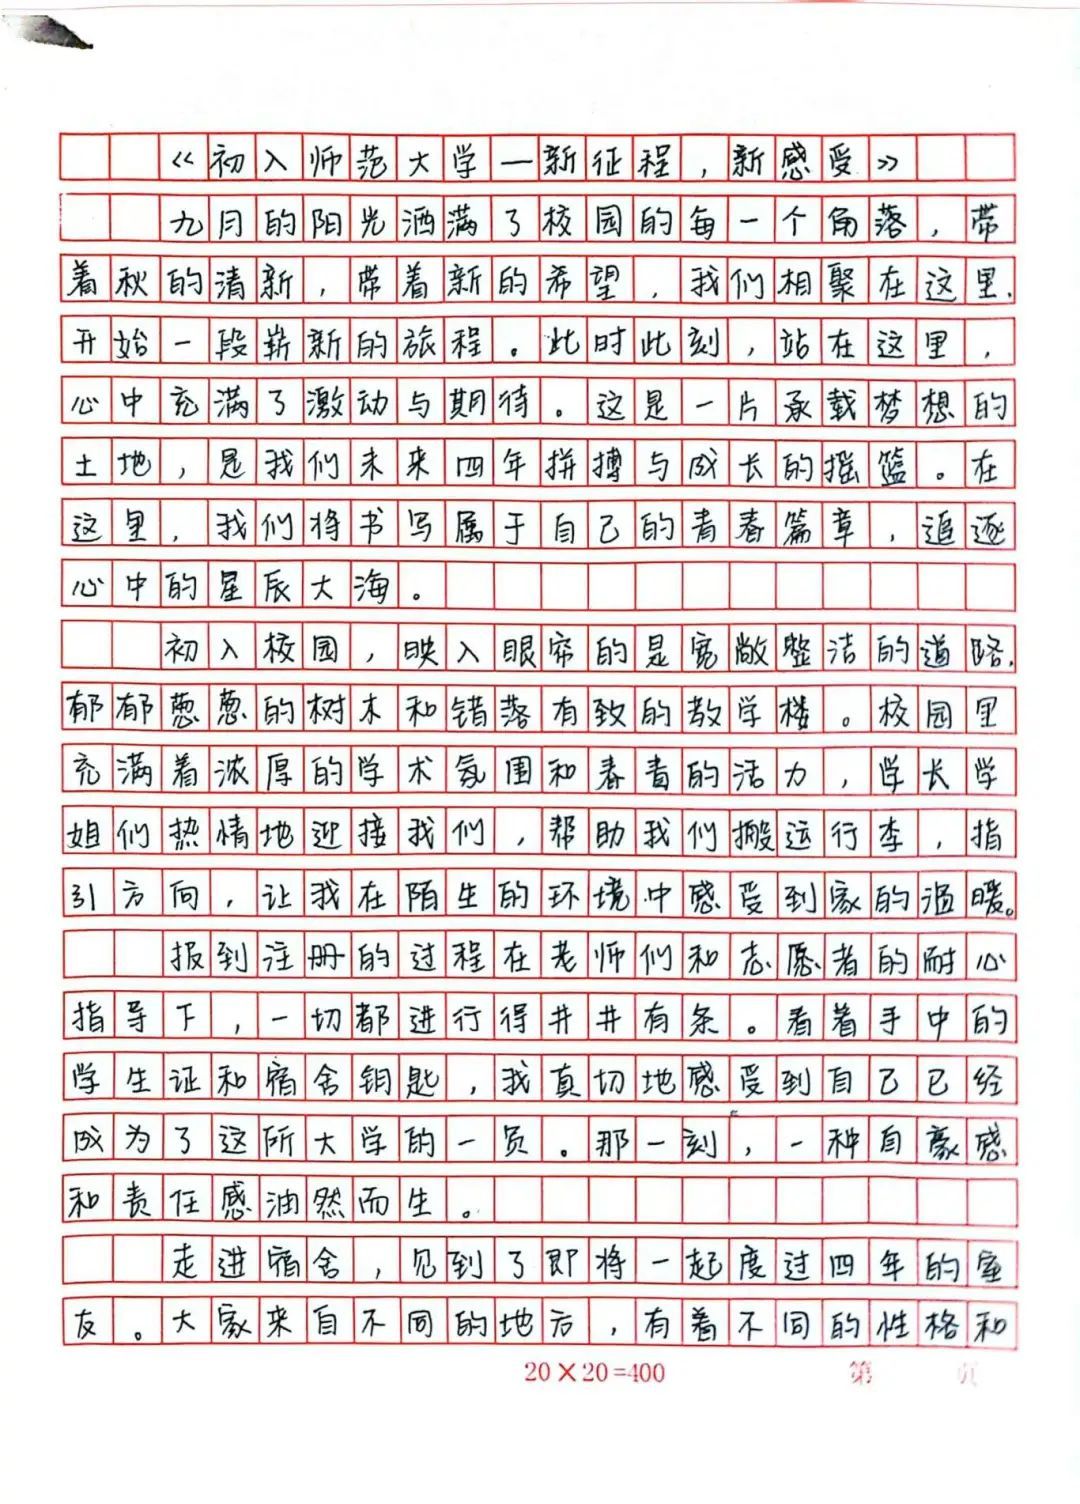 《初入师范大学—新征程，新感受》
九月的阳光洒满了校园的每一个角落，带
着秋的清新，带着新的希望，我们相聚在这里，
开始一段崭新的旅程。此时此刻，站在这里，
心中充满了激动与期待。这是一片承载梦想的
土地，是我们未来四年拼搏与成长的摇篮。在
这里，我们将书写属于自己的青春篇章，追逐
心中的星辰大海。
初入校园，映入眼帘的是宽敞整洁的道路，
郁郁葱葱的树木和错落有致的教学楼。校园里
充满着浓厚的学术氛围和青春的活力，学长学
姐们热情地迎接我们，帮助我们搬运行李，指
引方向，让我在陌生的环境中感受到家的温暖。
报到注册的过程在老师们和志愿者的耐心
指导下，一切都进行得井井有条。看着手中的
学生证和宿舍钥匙，我真切地感受到自己已经
成为了这所大学的一员。那一刻，一种自豪感
和责任感油然而生。
走进宿舍，见到了即将一起度过四年的室
友。大家来自不同的地方，有着不同的性格和
20×20=400 第 页